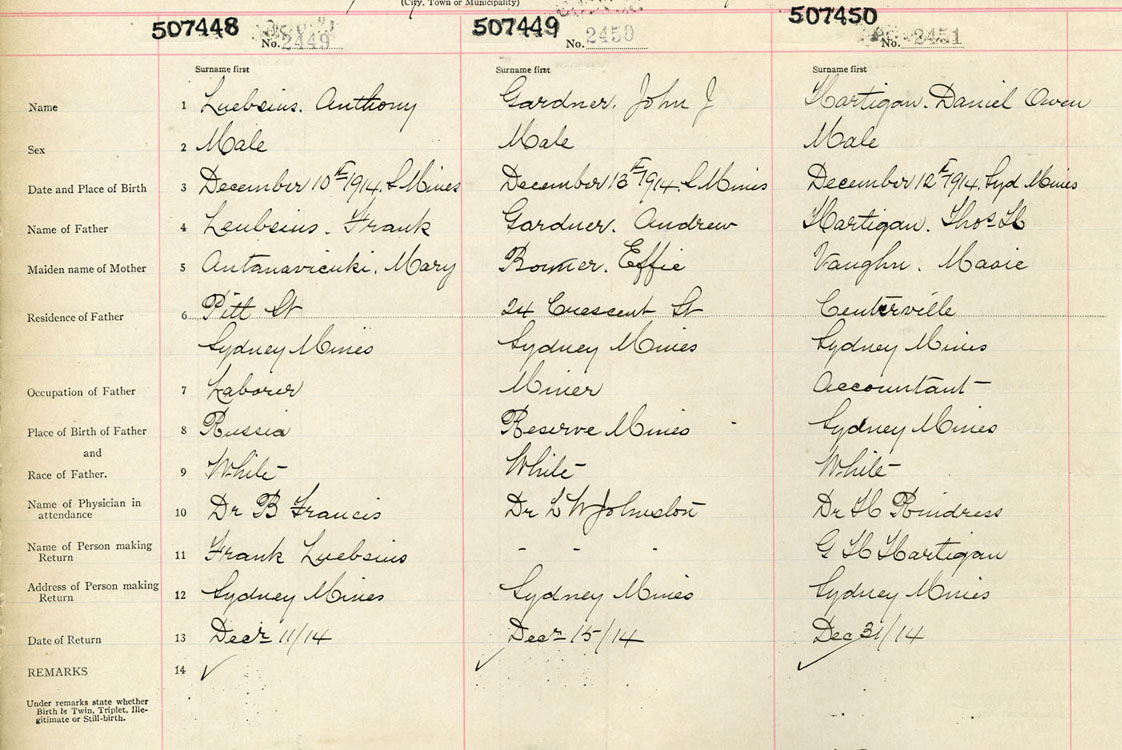 (City, Town or Municipality)
507448 507449 507450
No. 2449 No. 2450 No. 2451
Surname first Surname first Surname first
Name 1 Luebsius. Anthony Gardner. John J Hartigan. Daniel Owen
Sex 2 Male Male Male
Date and Place of Birth 3 December 10th 1914. S Mines December 13th 1914. S Mines December 12th 1914. Syd Mines
Name of Father 4 Leubsius. Frank Gardner. Andrew Hartigan. Thos H
Maiden name of Mother 5 Mary Effie Vaughn.
Residence of Father 6 Pitt St 24 Crescent St Centerville
Sydney Mines Sydney Mines Sydney Mines
Occupation of Father 7 Laborer Miner Accountant
Place of Birth of Father 8 Russia Reserve Mines Sydney Mines
and
Race of Father. 9 White White White
Name of Physician in
attendance 10 Dr B Francis Dr L W Johnston Dr H
Name of Person making
Return 11 Frank Luebsius - - - G H Hartigan
Address of Person making
Return 12 Sydney Mines Sydney Mines Sydney Mines
Date of Return 13 Decr 11/14 Decr 15/14 Dec 31/14
REMARKS 14
Under remarks state whether
Birth is Twin, Triplet, Ille-
gitimate or Still-birth.